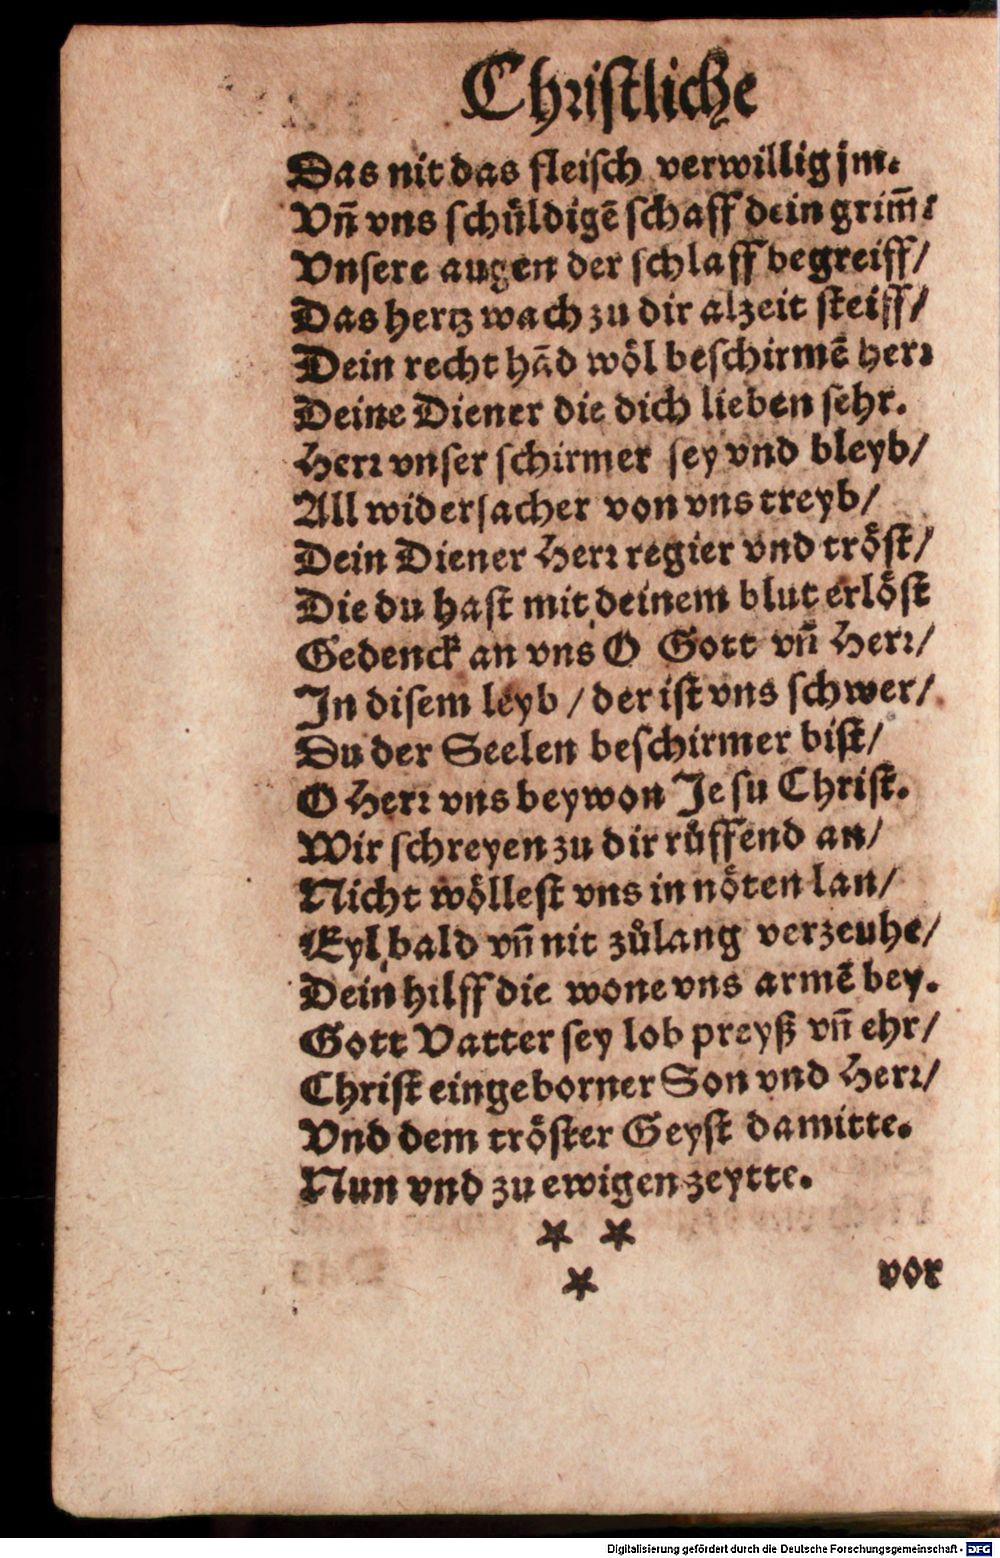 Christliche
Das nit das fleisch verwillig jm.
Vn̄ vns schüldigē schaff dein grim̄:
Vnsere augen der schlaff begreiff/
Das hertz wach zu dir alzeit steiff/
Dein recht hād wöl beschirmē herr
Deine Diener die dich lieben sehr.
Herr vnser schirmer sey vnd bleyb/
All widersacher von vns treyb/
Dein Diener Herr regier vnd tröst/
Die du hast mit deinem blut erlöst
Gedenck an vns O Gott vn̄ Herr/
In disem leyb / der ist vns schwer/
Du der Seelen beschirmer bist/
O Herr vns beywon Jesu Christ.
Wir schreyen zu dir růffend an/
Nicht wöllest vns in nöten lan/
Eyl bald vn̄ nit zůlang verzeuhe/
Dein hilff die wone vns armē bey.
Gott Vatter sey lob preyß vn̄ ehr/
Christ eingeborner Son vnd Herr/
Vnd dem tröster Geyst damitte.
Nun vnd zu ewigen zeytte.
vor
Digitalisierung gefördert durch die Deutsche Forschungsgemeinschaft - DFG